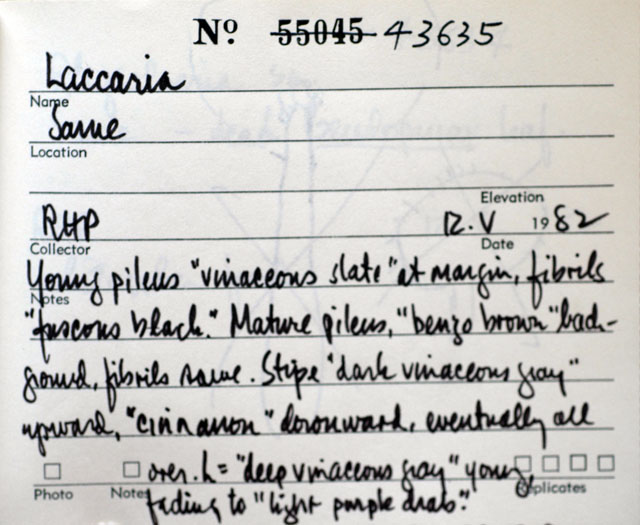 Nº 55045 43635
Laccaria
Name
Same
Location
Elevation
RHP 12.V 1982
Collector Date
Young pileus "vinaceous slate" at margin, fibrils
Notes
"fuscous black." Mature pileus, "benzo brown" back-
ground, fibrils same. Stipe "dark vinaceous gray"
upward, "cinnamon" downward, eventually all
over. L = "deep vinaceous gray" young
Photo Notes Duplicates
fading to "light purple drab."